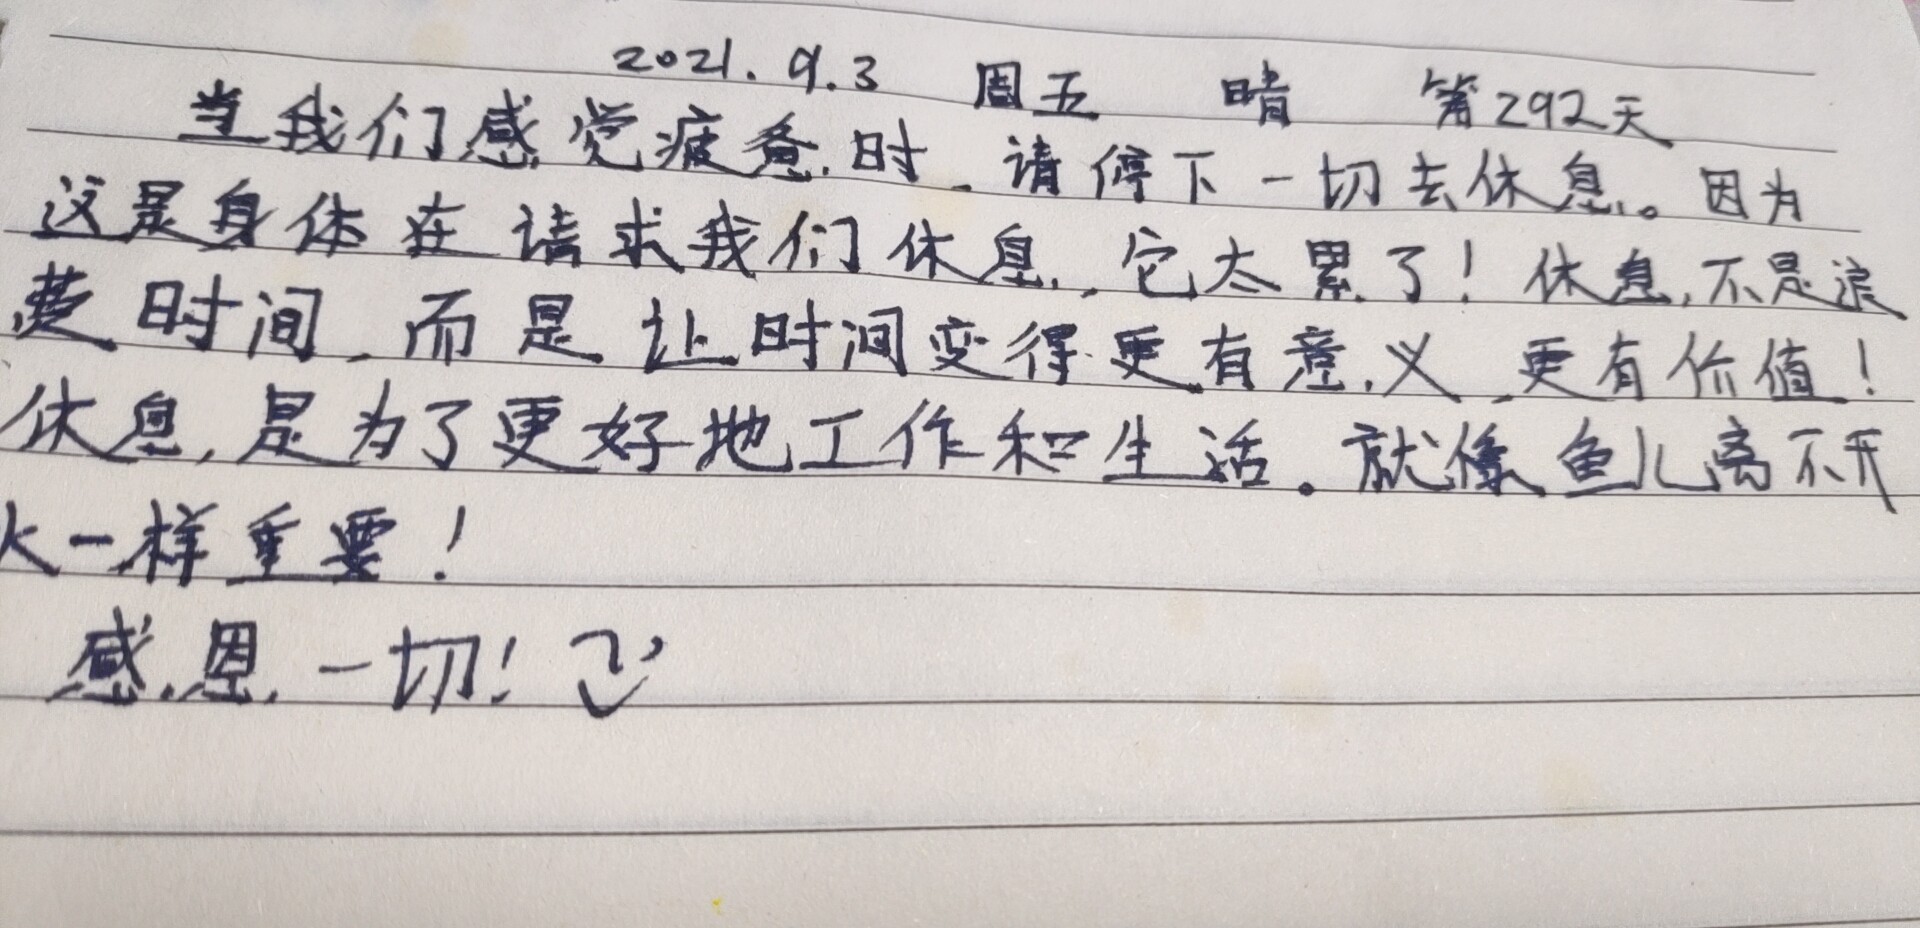 2021.9.3 周五 晴 第292天
当我们感觉疲惫时,请停下一切去休息。因为
这是身体在请求我们休息,它太累了!休息,不是浪
费时间,而是让时间变得更有意义,更有价值!
休息,是为了更好地工作和生活。就像鱼儿离不开
水一样重要!
感恩一切!